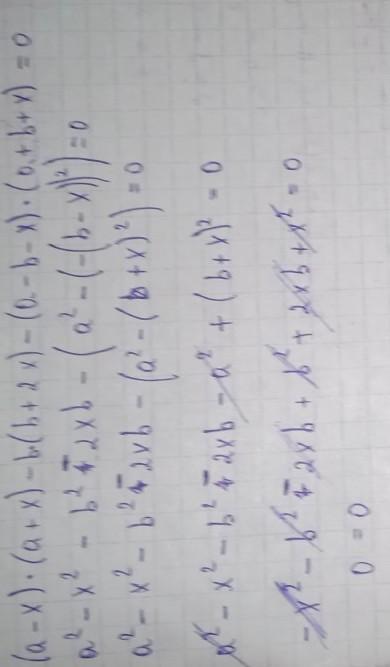 (a-x)·(a+x)-b(b+2x)-(a-b-x)·(a+b+x)=0
a²-x²-b²-2xb-(a²-(-(b-x))²)=0
a²-x²-b²-2xb-(a²-(b+x)²)=0
a²-x²-b²-2xb-a²+(b+x)²=0
-x²-b²-2xb+b²+2xb+x²=0
0=0